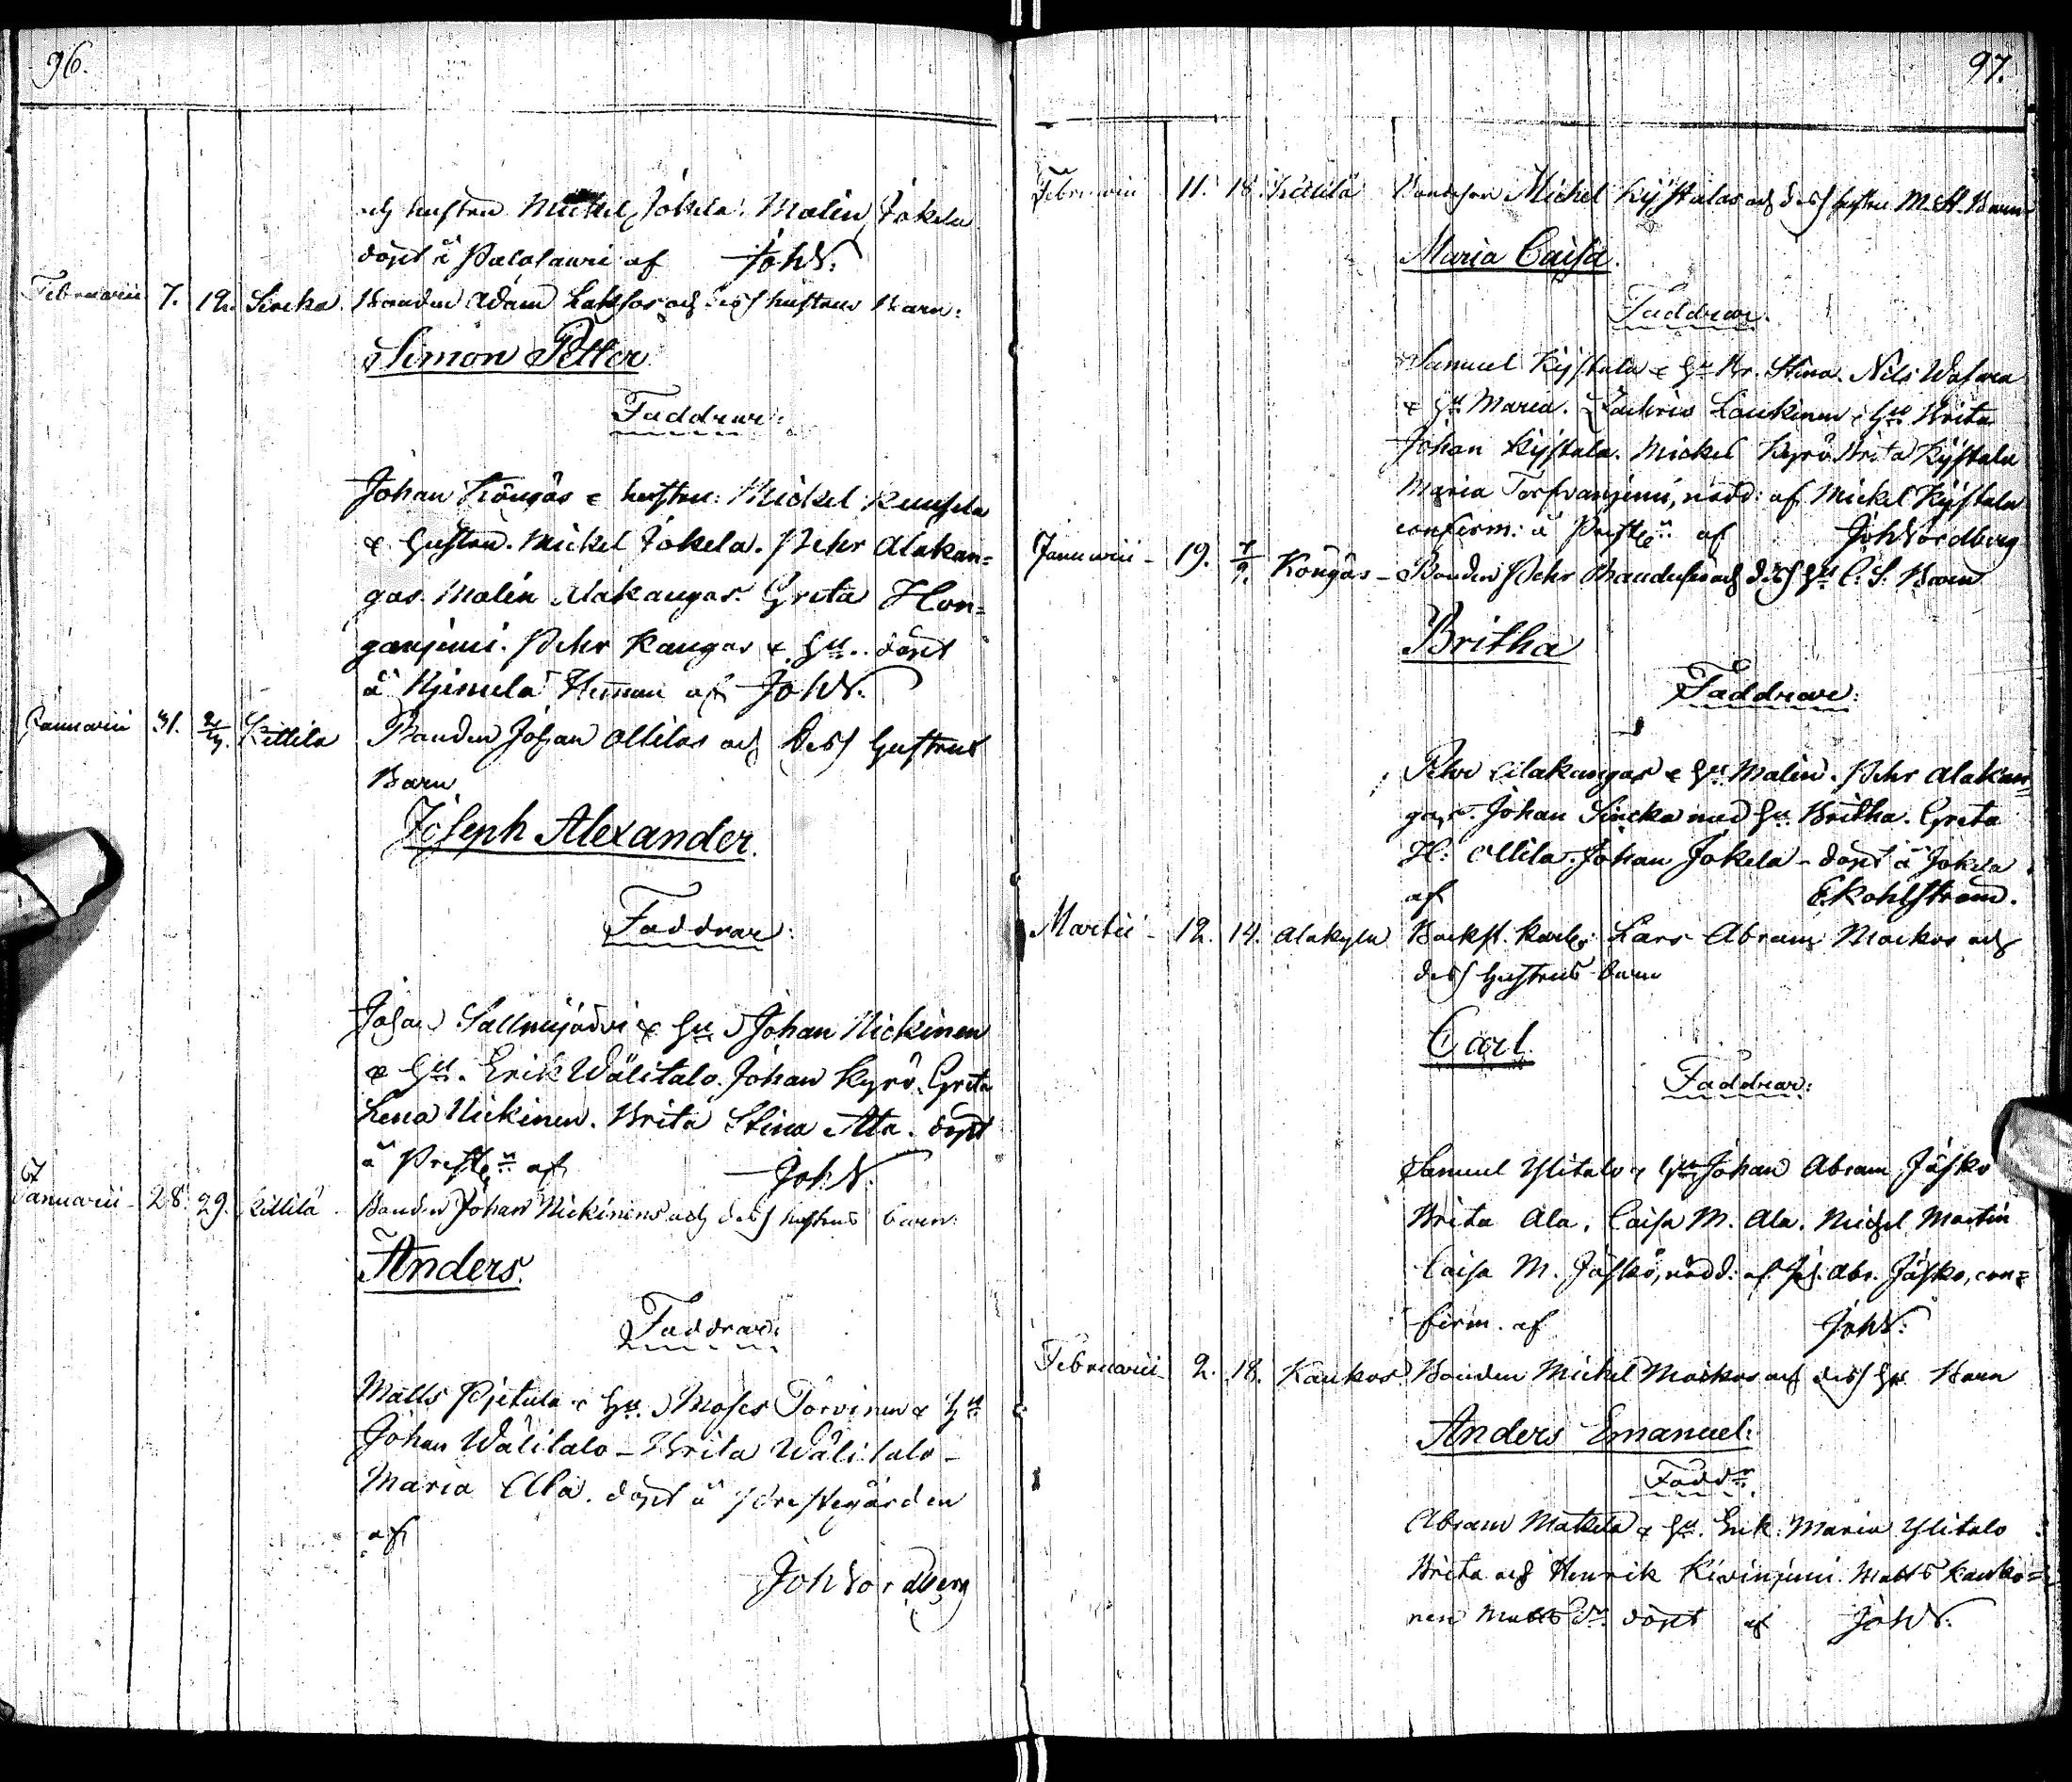 96.
och hustru Mickel Jokela. Malin Jokela
döpt å Palolauri af Joh N:
Februarii 7. 12. Sircka. Bonden Adam Lassas och dess hustrus Barn:
Simon Petter
Faddrar:
Johan Köngäs & hustru: Mickel
& hustru. Mickel Jokela. Pehr Alakan=
gas. Malin Alakangas. Greta Hon=
ganjemi. Pehr Kangas & hu. döpt
å Hemman af Joh N.
Januarii 31. Kittilä Bonden Johan Ollilas och dess hustrus
Barn
Joseph Alexander.
Faddrar:
Johan & hu Johan Nickinen
& hu. Erik Wälitalo. Johan Kyrö. Greta
Lena Nickinen. Brita Stina Ala. döpt
å Prestg:n af Joh N.
Januarii 28. 29. Kittilä Bonden Johan Nickinens och dess hustrus barn:
Anders.
Faddrar:
Matts Pjetula & hu. Moses Torvinen & hu
Johan Wälitalo – Brita Wälitalo –
Maria Ala. döpt å Prestegården
af
Joh Nordberg
97.
Februarii 11. 18. Kittilä Michel Kystalas och dess hustru M. H. Barn
Maria Caisa.
Faddrar.
Samuel Kystala & hu Br. Stina. Nils
& hu Maria. Zachris Laukinen & hu Brita
Johan Kystala. Mickel Kyrö Brita Kystala
Maria Torfvanjemi, nödd: af Mickel Kystala
confirm: å Prestg:n af Joh Nordberg
Januarii – 19. 7/9. Köngäs – Bonden Pehr och dess hu C. S. Barn
Britha
Faddrare:
Pehr Alakangas & hu Malin. Pehr Alakan=
gas. Johan Sircka med hu. Britha. Greta
H: Ollila. Johan Jokela – döpt å Jokela
af E Kohlström.
Martii – 12. 14. Alakylä Backst. karlen: Lars Abram Mackos och
dess hustrus barn
Carl.
Faddrar:
Samuel Ylitalo & hu Johan Abram Jäsko
Brita Ala. Caisa M. Ala. Michel Martin
Caisa M. Jäsko, nödd: af Joh. Abr. Jäsko, con=
firm. af Joh N:
Februarii – 2. 18. Kaukos Bonden Michel Mackos och dess hu Barn
Anders Emanuel:
Fadd:r
Abram Mattila & hu. Erik. Maria Ylitalo
Brita och Henrik Kivinjemi. Matts Kauko=
nen Matts d:r döpt af Joh N.